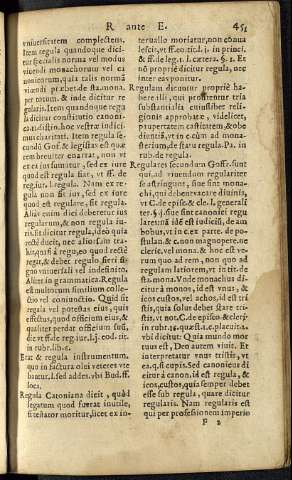 R ante E. 451
vniuersitatem complectens.
Item regula quandoque dici
tur specialis norma vel modus
viuendi monachorum vel ca
nonicorum, quia talis norma
viuendi
per totum. & inde dicitur re
gularis. Item quandoque rega
la dicitur constitutio canoni-
ca.
cundum chori. Item regula se-
cundũ Goff. & legistas est quæ
rem breuiter enarrat, non vt
ex ea ius sumatur, sed ex iure
quod est regula fiat, vt ff. de
reg. iur. l. regula. Nam ex re-
gula non sit ius, sed ex iure
quod est regulare, sit regula.
Aliàs enim dici deberetur ius
regularum, & non regula iu-
ris. Et dicitur regula, ideò quia
rectè ducit, nec aliorsum tra-
hit, quasi à rego, eo quod rectè
regat, & debet regulo fieri si-
gno vniuersali vel indefinito.
Aliter in grammatica. Regula
est multorum similium colle-
ctio vel coniunctio. Quid sit
regula vel potestas eius, quis
effectus, quod officium eius, &
qualiter perdat officium suũ,
dic vt ff. de reg. iur. l. j. cod. tit.
in rub. lib. c.
Erat & regula instrumentum,
quo in factura olei veteres vte
bantur. l. sed addes. vbi Bud. ff.
loca.
Regula Catoniana dicit, quòd
legatum quod fuerat inutile,
si testator moritur, licet ex in-
teruallo moriatur, non conua
lescit, vt ff. eo. titul. j. in princi.
& ff. de leg. 1. l. cætera. §. 1. Et
nõ propriè dicitur regula, nec
inter eas ponitur.
Regulam dicuntur propriè ha-
bere illi, qui profitentur tria
substantialia cuiuslibet reli-
gionis approbatæ, videlicet,
paupertatem castitatem & obe
dientiã, vt in c. cùm ad mona-
sterium, de statu regula. Pa. in
rub. de regula.
Regulares secundum Goff. sunt
qui ad viuendum regulariter
se astringunt, siue sint mona-
chi, qui debent vacare diuinis,
vt C. de episc. & cle. l. generali
ter. § j. siue sint canonici regu
lares
bus, vt in c. ex parte. de po-
stulan. & c. non magnopere. ne
cleric. vel mona. & hoc est ve-
rum quo ad rem, non quo ad
regulam latiorem, vt in tit. de
sta. mona. Vnde monachus di-
citur à monos, id est vnus, &
icos custos, vel achos, id est tri
stis, quia solus debet stare tri-
stis. vt not. C. de episco. & cleri
in rub.
vbi dicitur: Quia mundo mor
tuus est, Deo autem viuit. Et
interpretatur vnus tristis, vt
ea. q. si cupis. Sed canonicus di
citur à canon. id est regula, &
icos, custos, quia semper debet
esse sub regula, quare dicitur
regularis. Nam regularis est
qui per professionem imperio
F 2